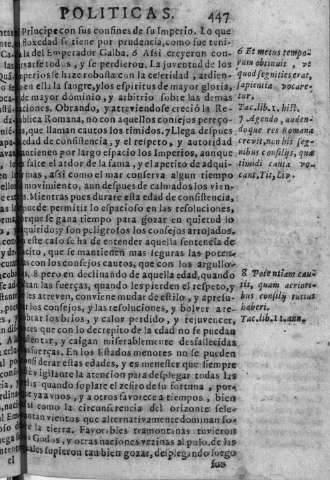 POLITICAS. 447
Principe con sus confines de su Imperio. Lo que
floxedad se tiene por prudencia, como fue teni-
la del Emperador Galba. 6 Assi creyeron con-
servarse todos, y se perdieron. La juventud de los
Imperios se haze robusta con la celeridad, ardien-
en ella la sangre, y los espiritus de mayor gloria,
de mayor dominio, y arbitrio sobre las demas
naciones. Obrando, y atreviendose creciò la Re-
publica Romana, no con aquellos consejos perezo-
que llaman cautos los timidos. 7 Llega despues
edad de consistencia, y el respeto, y autoridad
mantienen por largo espacio los Imperios, aunque
falte el ardor de la fama, y el apetito de adqui-
mas, assi como el mar conserva algun tiempo
movimiento, aun despues de calmados los vien-
Mientras pues durare esta edad de consistencia,
puede permitir lo espacioso en las resoluciones,
porque se gana tiempo para gozar en quietud lo
adquirido; y son peligrosos los consejos arrojados.
este caso se ha de entender aquella sentencia de
Tacito, que se mantienen mas seguras las poten-
con los consejos cautos, que con los argullo-
8 pero en declinando de aquella edad, quando
faltan las fuerças, quando les pierden el respeto, y
les atreven, conviene mudar de estilo, y apresu-
los consejos, y las resoluciones, y bolver a re-
cobrar los brios, y calor perdido, y rejuvenecer,
antes que con lo decrepito de la edad no se puedan
sustentar, y caigan miserablemente desfallecidas
fuerças. En los Estados menores no se pueden
considerar estas edades, y es menester que siempre
vigilante la atencion para desplegar todas las
velas quando soplare el zefiro de su fortuna, por-
que ya a unos, y a otros favorece a tiempos, bien
assi como la circunferencia del orizonte se le-
vantan vientos que alternativamente dominan so-
bre la tierra. Favorables tramontanas tuvieron
los Godos, y otras naciones vezinas al polo, de las
quales supieron tambien gozar, desplegando luego
sus
6 Et metus tempo-
rum obtentui, ut
quod segnities erat,
sapientia vocare-
tur.
Tac. lib. 1. hist.
7 Agendo, auden-
doque res Romana
crevit, non his seg-
nibus consilijs, quæ
timidi cauta vo-
cant, Tit, Liv.
8. Potentiam cau-
tis, quam acriori-
bus consilijs tutius
haberi.
Tac. lib. 11. ann.